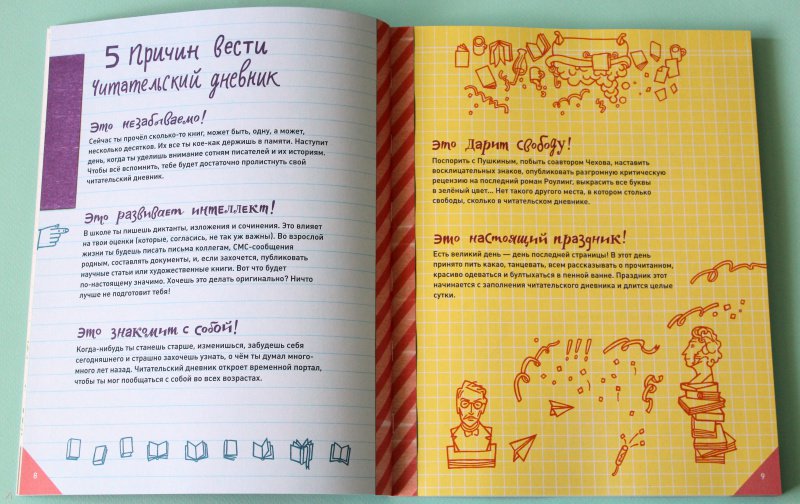 5 Причин вести
читательский дневник
Это незабываемо!
Сейчас ты прочёл сколько-то книг, может быть, одну, а может,
несколько десятков. Их все ты кое-как держишь в памяти. Наступит
день, когда ты уделишь внимание сотням писателей и их историям.
Чтобы всё вспомнить, тебе будет достаточно пролистнуть свой
читательский дневник.
Это развивает интеллект!
В школе ты пишешь диктанты, изложения и сочинения. Это влияет
на твои оценки (которые, согласись, не так уж важны). Во взрослой
жизни ты будешь писать письма коллегам, СМС-сообщения
родным, составлять документы, и, если захочется, публиковать
научные статьи или художественные книги. Вот что будет
по-настоящему значимо. Хочешь это делать оригинально? Ничто
лучше не подготовит тебя!
Это знакомит с собой!
Когда-нибудь ты станешь старше, изменишься, забудешь себя
сегодняшнего и страшно захочешь узнать, о чём ты думал много-
много лет назад. Читательский дневник откроет временной портал,
чтобы ты мог пообщаться с собой во всех возрастах.
8
Это Дарит свободу!
Поспорить с Пушкиным, побыть соавтором Чехова, наставить
восклицательных знаков, опубликовать разгромную критическую
рецензию на последний роман Роулинг, выкрасить все буквы
в зелёный цвет... Нет такого другого места, в котором столько
свободы, сколько в читательском дневнике.
Это настоящий праздник!
Есть великий день — день последней страницы! В этот день
принято пить какао, танцевать, всем рассказывать о прочитанном,
красиво одеваться и бултыхаться в пенной ванне. Праздник этот
начинается с заполнения читательского дневника и длится целые
сутки.
!!!
9